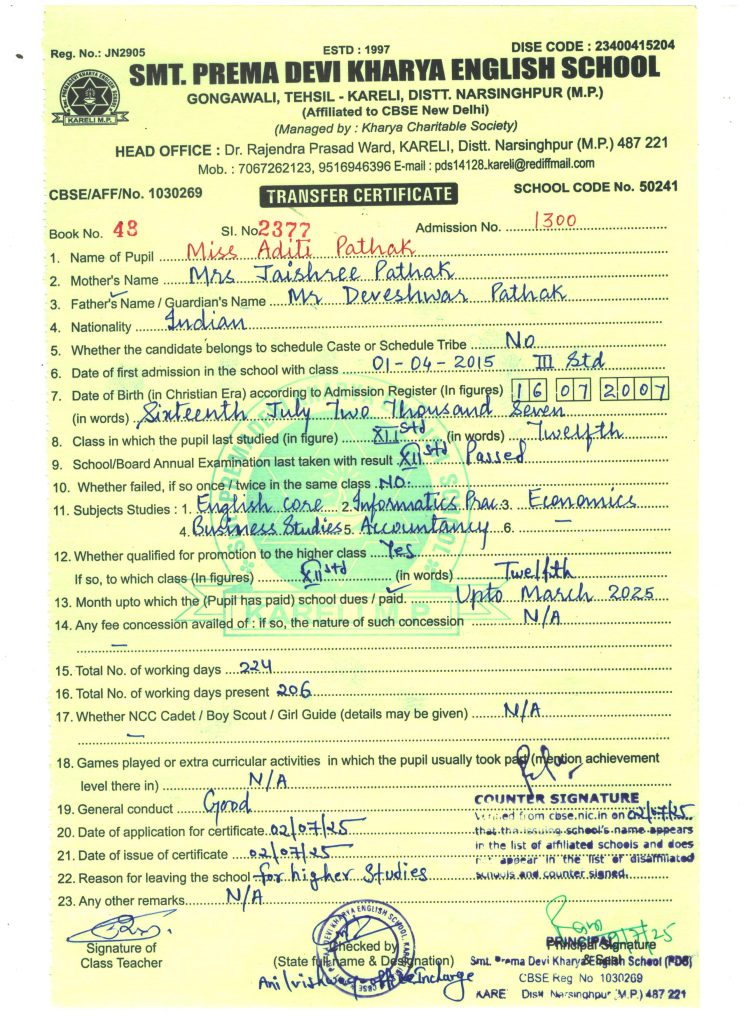 Reg. No.: JN2905
ESTD : 1997
DISE CODE : 23400415204
SMT. PREMA DEVI KHARYA ENGLISH SCHOOL
GONGAWALI, TEHSIL - KARELI, DISTT. NARSINGHPUR (M.P.)
(Affiliated to CBSE New Delhi)
(Managed by : Kharya Charitable Society)
KARELI M.P.
HEAD OFFICE : Dr. Rajendra Prasad Ward, KARELI, Distt. Narsinghpur (M.P.) 487 221
Mob. : 7067262123, 9516946396 E-mail : pds14128_kareli@rediffmail.com
CBSE/AFF/No. 1030269
TRANSFER CERTIFICATE
SCHOOL CODE No. 50241
Book No. 48 Sl. No 2377 Admission No. 1300
1. Name of Pupil Miss Aditi Pathak
2. Mother's Name Mrs Jaishree Pathak
3. Father's Name / Guardian's Name Mr Deveshwar Pathak
4. Nationality Indian
5. Whether the candidate belongs to schedule Caste or Schedule Tribe No
6. Date of first admission in the school with class 01-04-2015 III Std
7. Date of Birth (in Christian Era) according to Admission Register (In figures) 16 07 2007
(in words) Sixteenth July Two Thousand Seven
8. Class in which the pupil last studied (in figure) XII std (in words) Twelfth
9. School/Board Annual Examination last taken with result XII std Passed
10. Whether failed, if so once / twice in the same class NO.
11. Subjects Studies : 1. English core 2. Informatics Prac. 3. Economics
4. Business Studies 5. Accountancy 6. —
12. Whether qualified for promotion to the higher class Yes
If so, to which class (In figures) XII std (in words) Twelfth
13. Month upto which the (Pupil has paid) school dues / paid. Upto March 2025
14. Any fee concession availed of : if so, the nature of such concession N/A
—
15. Total No. of working days 224
16. Total No. of working days present 206
17. Whether NCC Cadet / Boy Scout / Girl Guide (details may be given) N/A
—
18. Games played or extra curricular activities in which the pupil usually took part (mention achievement
level there in) N/A
19. General conduct Good
20. Date of application for certificate 02/07/25
21. Date of issue of certificate 02/07/25
22. Reason for leaving the school for higher Studies
23. Any other remarks N/A
COUNTER SIGNATURE
Verified from cbse.nic.in on 02/07/25
that the issuing school's name appears
in the list of affiliated schools and does
appear in the list of disaffiliated
schools and counter signed.
Signature of
Class Teacher
Checked by
(State full name & Designation)
office Incharge
PRINCIPAL
Principal Signature
& Seal
Smt. Prema Devi Kharya English School (PDS)
CBSE Reg No 1030269
KARE Distt Narsinghpur (M.P.) 487 221